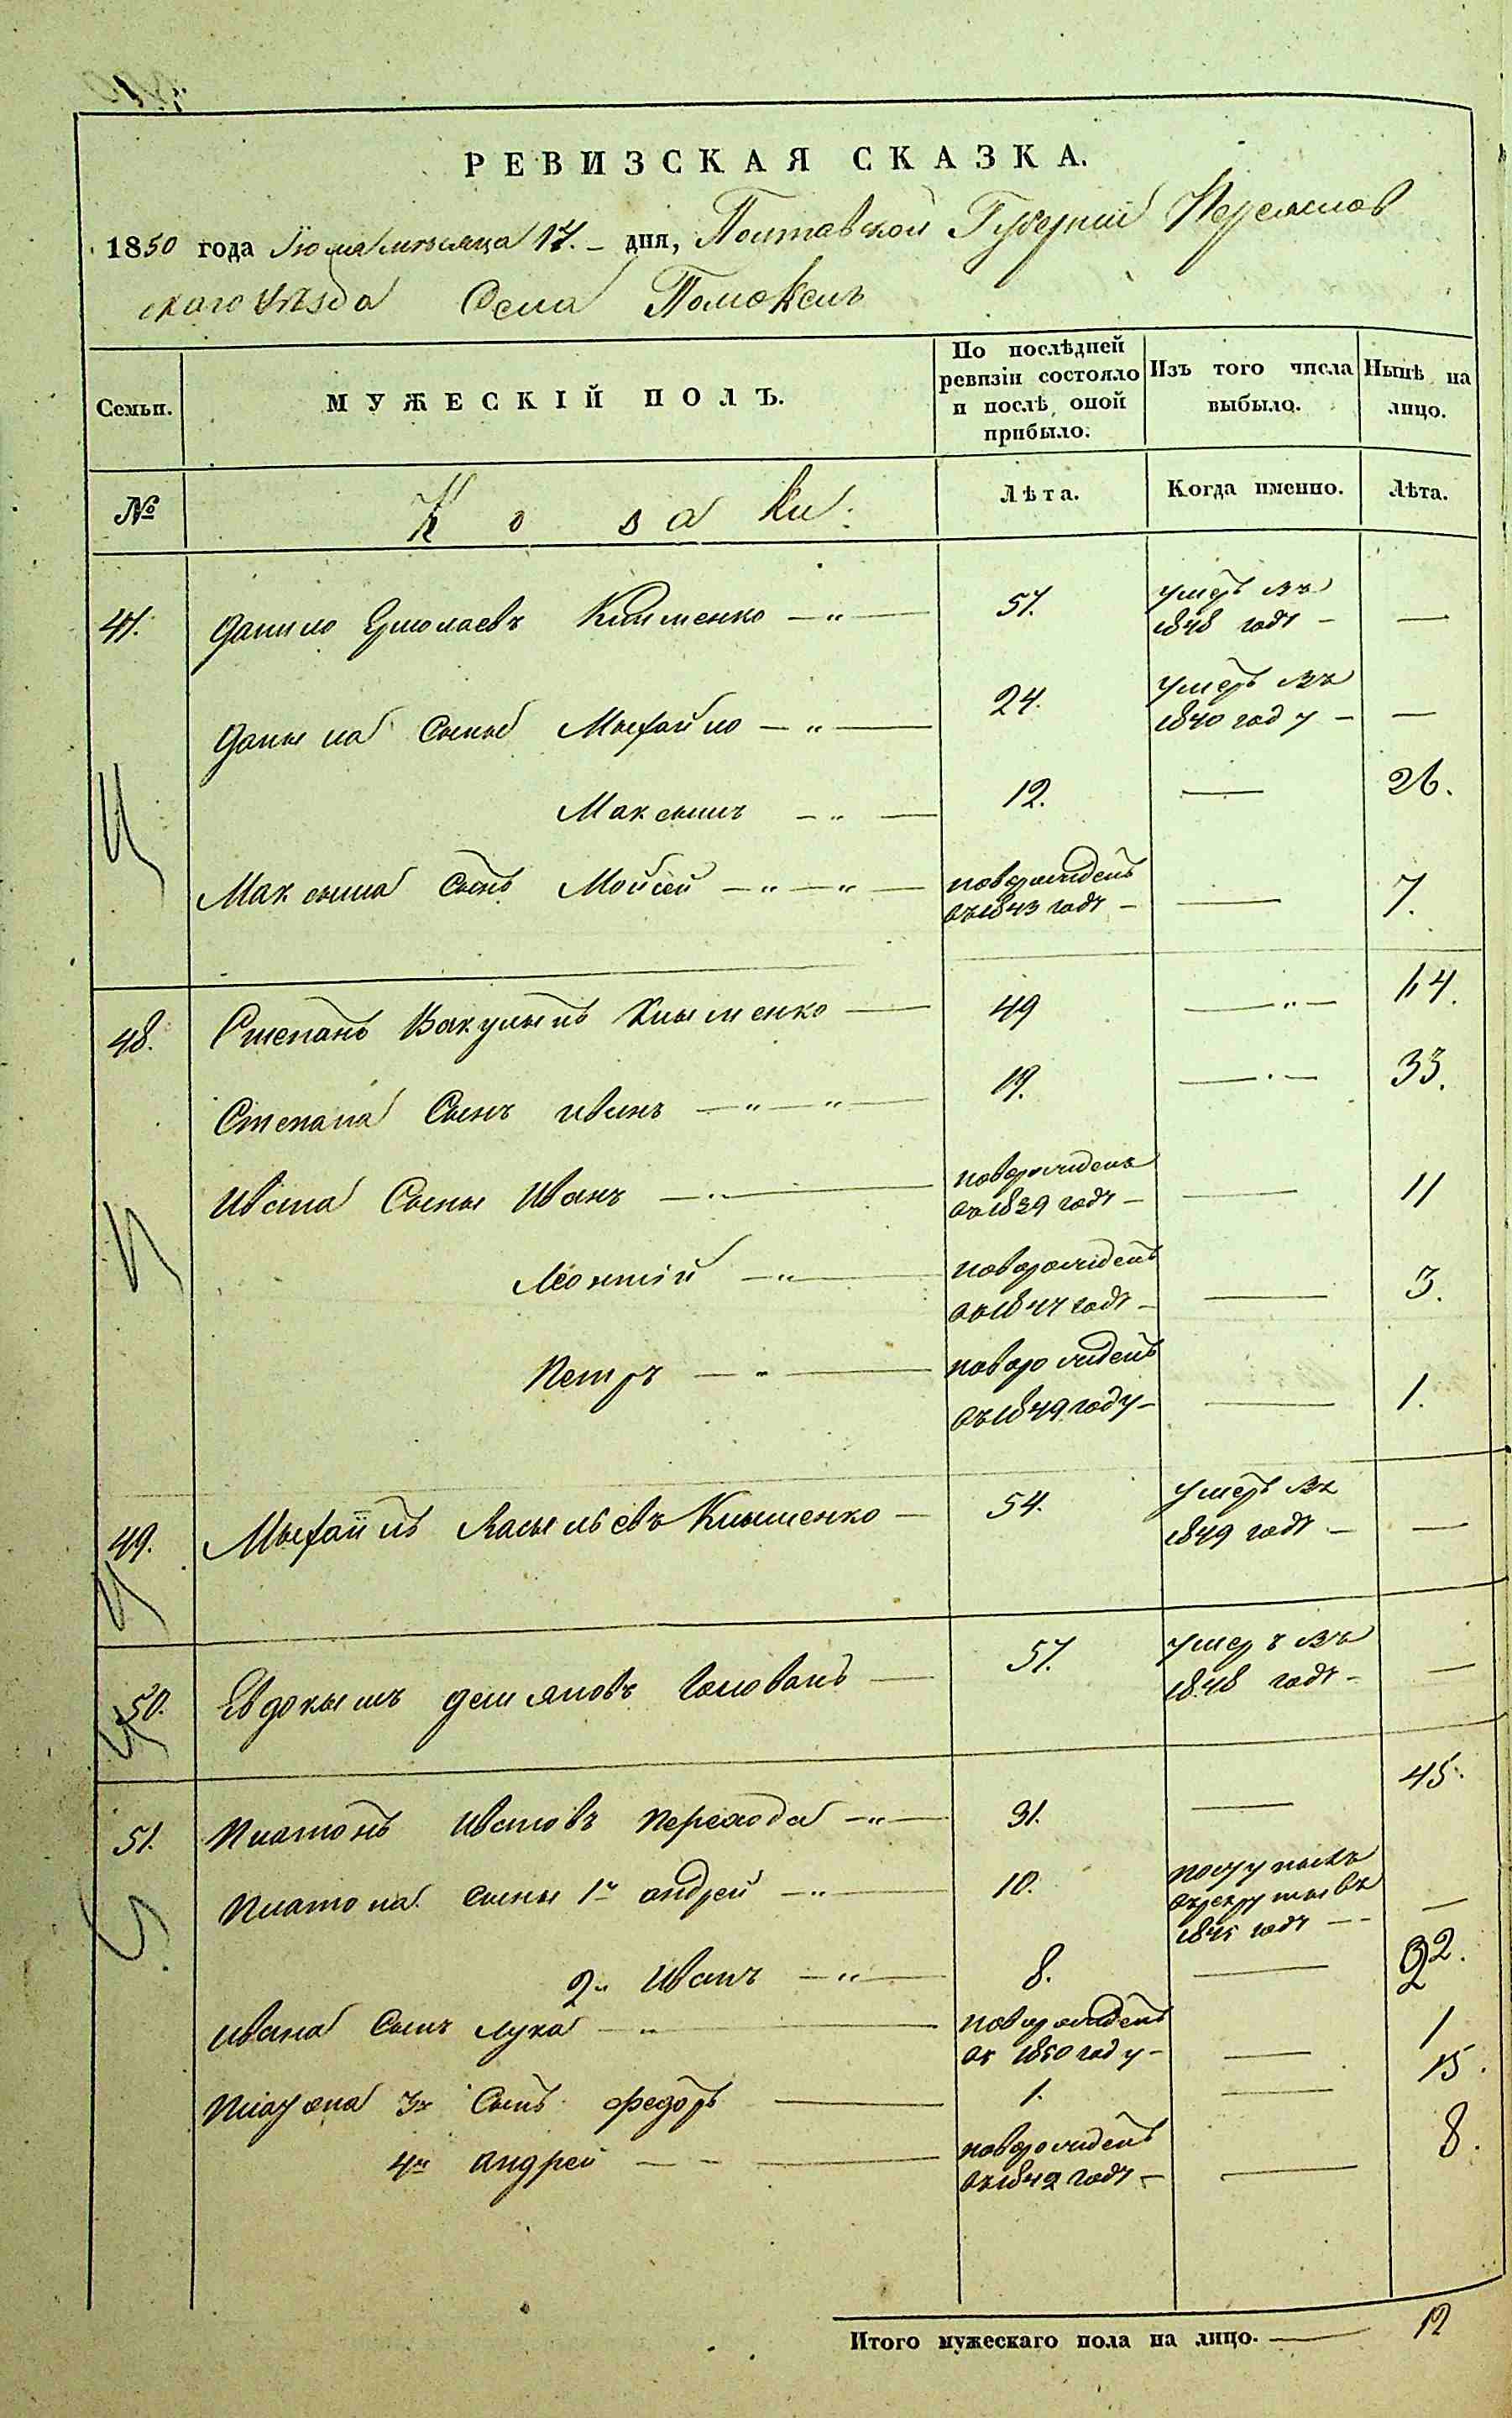 РЕВИЗСКАЯ СКАЗКА.
1850 года Іюля месяца 17. – дня, Полтавской Губерніи Переяслов
скаго Уѣзда Села Помоклъ
Семьи.
МУЖЕСКІЙ ПОЛЪ.
По послѣдней ревизіи состояло и послѣ оной прибыло.
Изъ того числа выбыло.
Нынѣ на лицо.
№
Козаки.
Лѣта.
Когда именно.
Лѣта.
47. Данило Ермолаевъ Клименко — 57. умеръ въ 1848 году — —
Данила Сыны Мыхайло — 24. умеръ въ 1840 году — —
Максымъ — 12. — 26.
Максыма Сынъ Мойсей — новорожденъ въ 1843 году — — 7.
48. Степанъ Вакулынъ Клыменко — 49 — 64.
Степана Сынъ иванъ — 19. — 33.
Ивана Сыны Иванъ — новорожденъ въ 1839 году — — 11
Леонтій — новорожденъ въ 1847 году — — 3.
Петръ — новорожденъ въ 1849 году — — 1.
49. Мыхаилъ Васыльевъ Клыменко — 54. умеръ въ 1849 году — —
50. Евдокымъ демяновъ Головань — 57. умеръ въ 1848 году — —
51. Платонъ Ивановъ Перехода — 31. — 45.
Платона сыны 1й андрей — 10. поступилъ въ рекруты въ 1845 году — —
2й Иванъ — 8. — 22.
ивана Сынъ лука — новорожденъ въ 1850 году — — 1
Платона 3й Сынъ федоръ — 1. — 15.
4й андрей — новорожденъ въ 1842 году — — 8.
Итого мужескаго пола на лицо. — 12